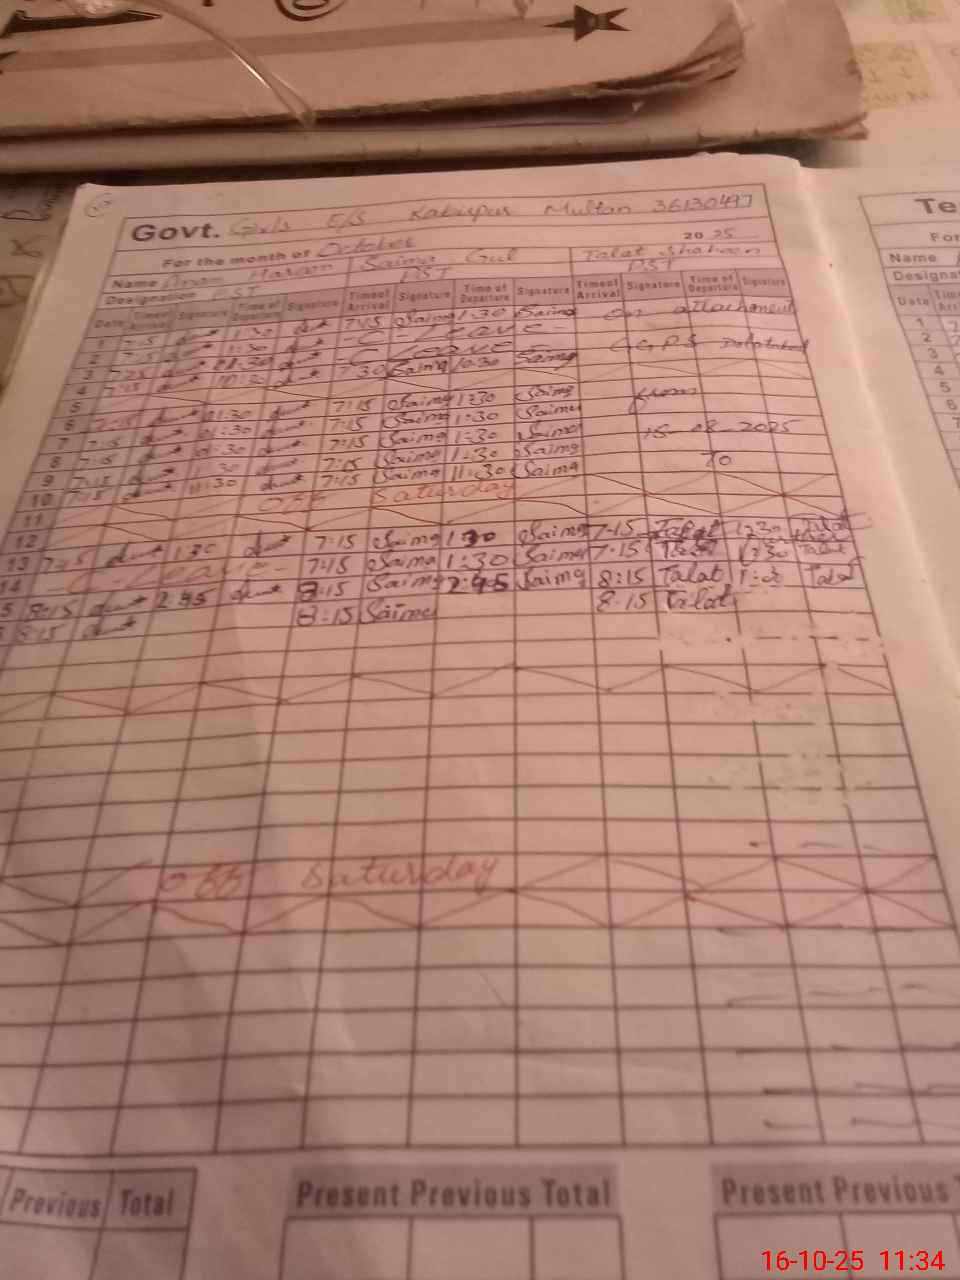 Govt. Girls E/S Kabirpur Multan 36130497
For the month of October 2025
Name Anam Haroon Saima Gul Talat Shaheen
Designation PST PST PST
Date Time of Arrival Signature Time of Departure Signature Time of Arrival Signature Time of Departure Signature Time of Arrival Signature Time of Departure Signature
1 7:15 1:30 7:15 Saima 1:30 Saima On attachment
2 7:15 1:30 -C-Leave-
3 7:15 11:30 -C-Leave- GGPS
4 7:15 10:30 7:30 Saima 10:30 Saima
5
6 7:15 01:30 7:15 Saima 1:30 Saima from
7 7:15 01:30 7:15 Saima 1:30 Saima
8 7:15 01:30 7:15 Saima 1:30 Saima 15-08-2025
9 7:15 1:30 7:15 Saima 1:30 Saima To
10 7:15 11:30 7:15 Saima 11:30 Saima
11 off Saturday
12
13 7:15 1:30 7:15 Saima 1:30 Saima 7-15 Talat 1:30 Talat
14 -C-Leave- 7:15 Saima 1:30 Saima 7-15 Talat 1:30 Talat
5 8:15 2:45 8:15 Saima 2:45 Saima 8:15 Talat Talat
8:15 8:15 Saima 8-15 Talat
off Saturday
Previous Total
Present Previous Total
Present Previous
Te
For
Name
Designa
Date
1
2
3
4
5
6
16-10-25 11:34